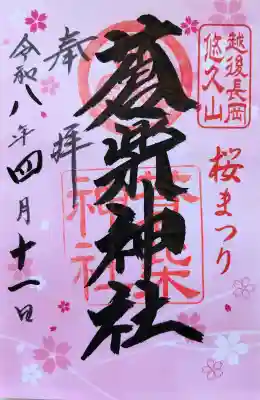 越後長岡
悠久山
桜まつり
奉拝
蒼柴神社
蒼柴
神社
令和八年四月十一日